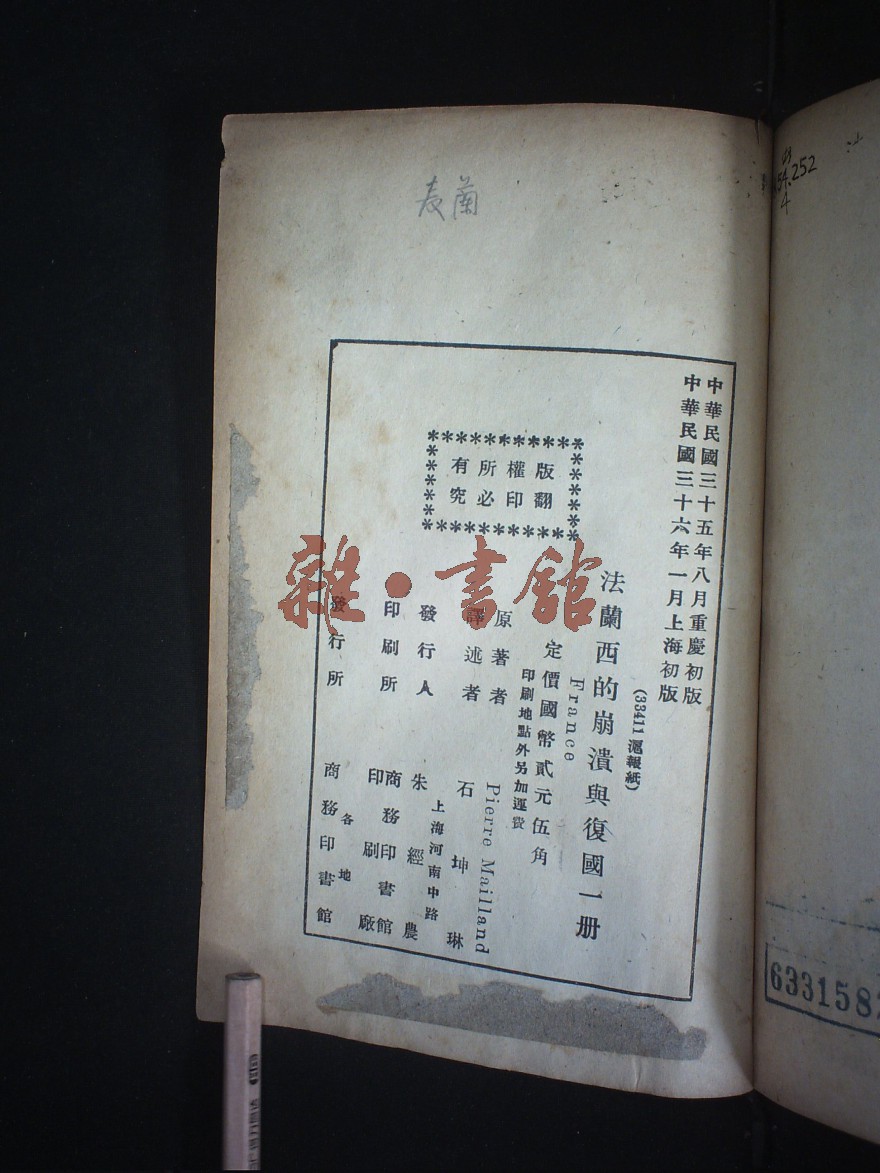 中華民國三十五年八月重慶初版
中華民國三十六年一月上海初版
(33411 滬報紙)
法蘭西的崩潰與復國一册
France
定價國幣貳元伍角
印刷地點外另加運費
版權所有
翻印必究
原著者 Pierre Mailland
譯述者 石坤琳
發行人 朱經農
上海河南中路
印刷所 商務印書館
印刷廠
發行所 各地
商務印書館
雜·書館
252
4
633158